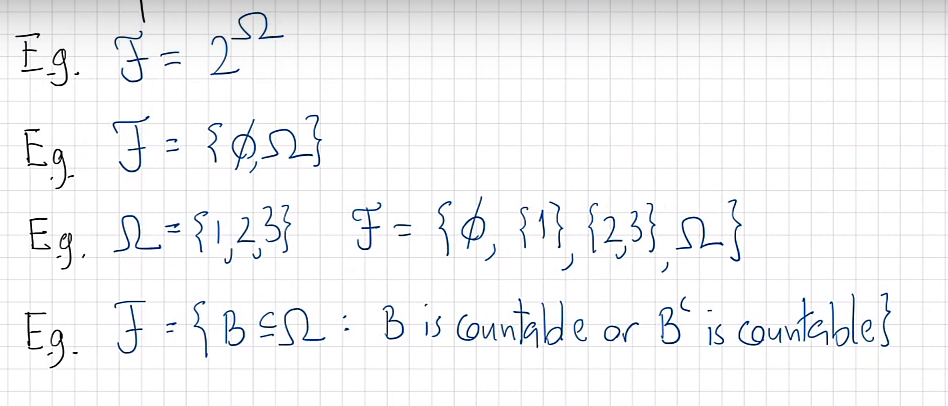 E.g. ℱ = 2^Ω
E.g. ℱ = {ϕ, Ω}
E.g. Ω = {1,2,3} ℱ = {ϕ, {1}, {2,3}, Ω}
E.g. ℱ = {B ⊆ Ω : B is countable or B^c is countable}